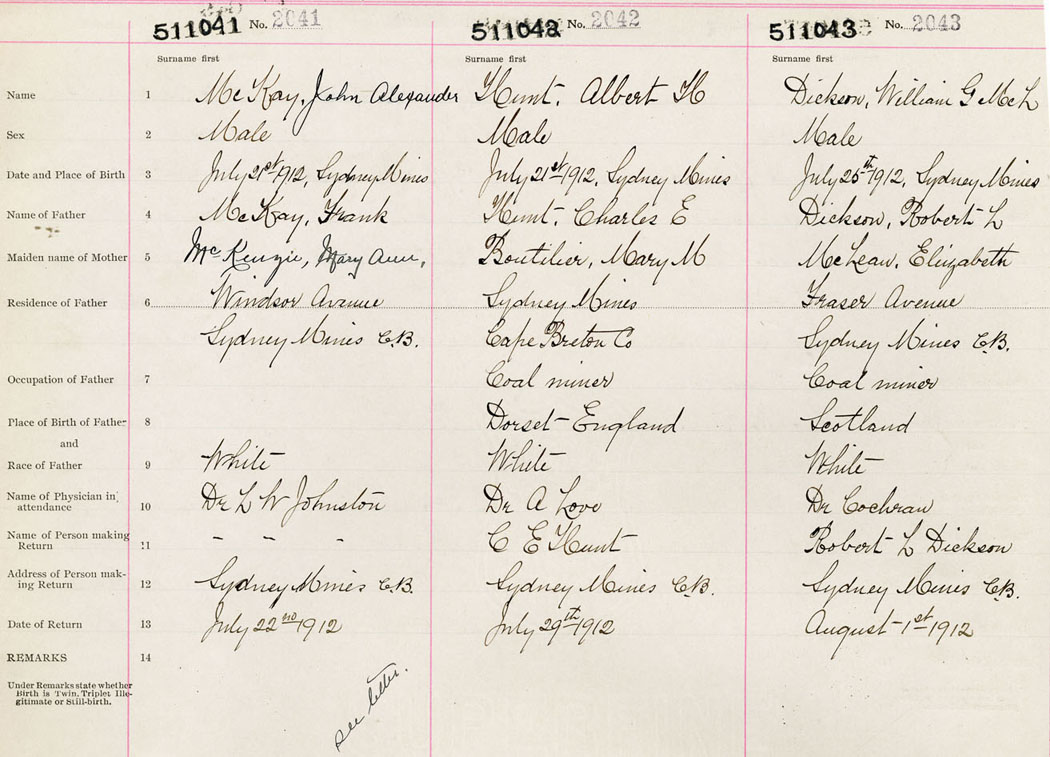 511041 No. 2041 511042 No. 2042 511043 No. 2043
Surname first Surname first Surname first
Name 1 McKay, John Alexander Hunt, Albert H Dickson, William G McL
Sex 2 Male Male Male
Date and Place of Birth 3 July 21st 1912, Sydney Mines July 21st 1912, Sydney Mines July 25th 1912, Sydney Mines
Name of Father 4 McKay, Frank Hunt, Charles E Dickson, Robert L
Maiden name of Mother 5 McKenzie, Mary Ann, Boutilier, Mary M McLean, Elizabeth
Residence of Father 6 Windsor Avenue Sydney Mines Fraser Avenue
Sydney Mines C.B. Cape Breton Co Sydney Mines C.B.
Occupation of Father 7 Coal miner Coal miner
Place of Birth of Father 8 Dorset England Scotland
and
Race of Father 9 White White White
Name of Physician in
attendance 10 Dr L W Johnston Dr A Love Dr Cochran
Name of Person making
Return 11 " " " C E Hunt Robert L Dickson
Address of Person mak-
ing Return 12 Sydney Mines C.B. Sydney Mines C.B. Sydney Mines C.B.
Date of Return 13 July 22nd 1912 July 29th 1912 August 1st 1912
REMARKS 14
Under Remarks state whether
Birth is Twin, Triplet Ille-
gitimate or Still-birth.
see letter.